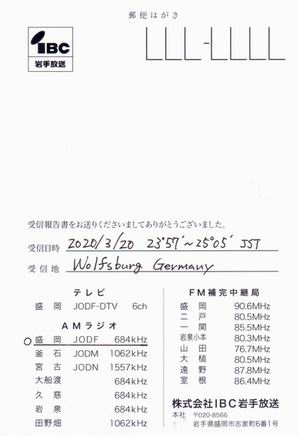 郵便はがき
IBC
岩手放送
受信報告書をお送りくださいましてありがとうございました。
受信日時 2020/3/20 23°57′~25°05′ JST
受信地 Wolfsburg Germany
テレビ
盛岡 JODF-DTV 6ch
AMラジオ
盛岡 JODF 684kHz
釜石 JODM 1062kHz
宮古 JODN 1557kHz
大船渡 684kHz
久慈 684kHz
岩泉 684kHz
田野畑 1062kHz
FM補完中継局
盛岡 90.6MHz
二戸 80.5MHz
一関 85.5MHz
岩泉小本 80.3MHz
山田 76.7MHz
大槌 80.5MHz
遠野 87.8MHz
室根 86.4MHz
株式会社IBC岩手放送
本社 〒020-8566
岩手県盛岡市志家町6番1号